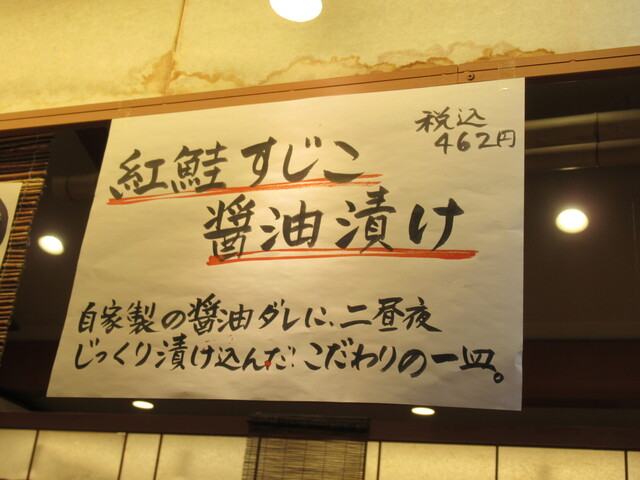 税込
462円
紅鮭すじこ
醤油漬け
自家製の醤油ダレに、二昼夜
じっくり漬け込んだ!こだわりの一皿。